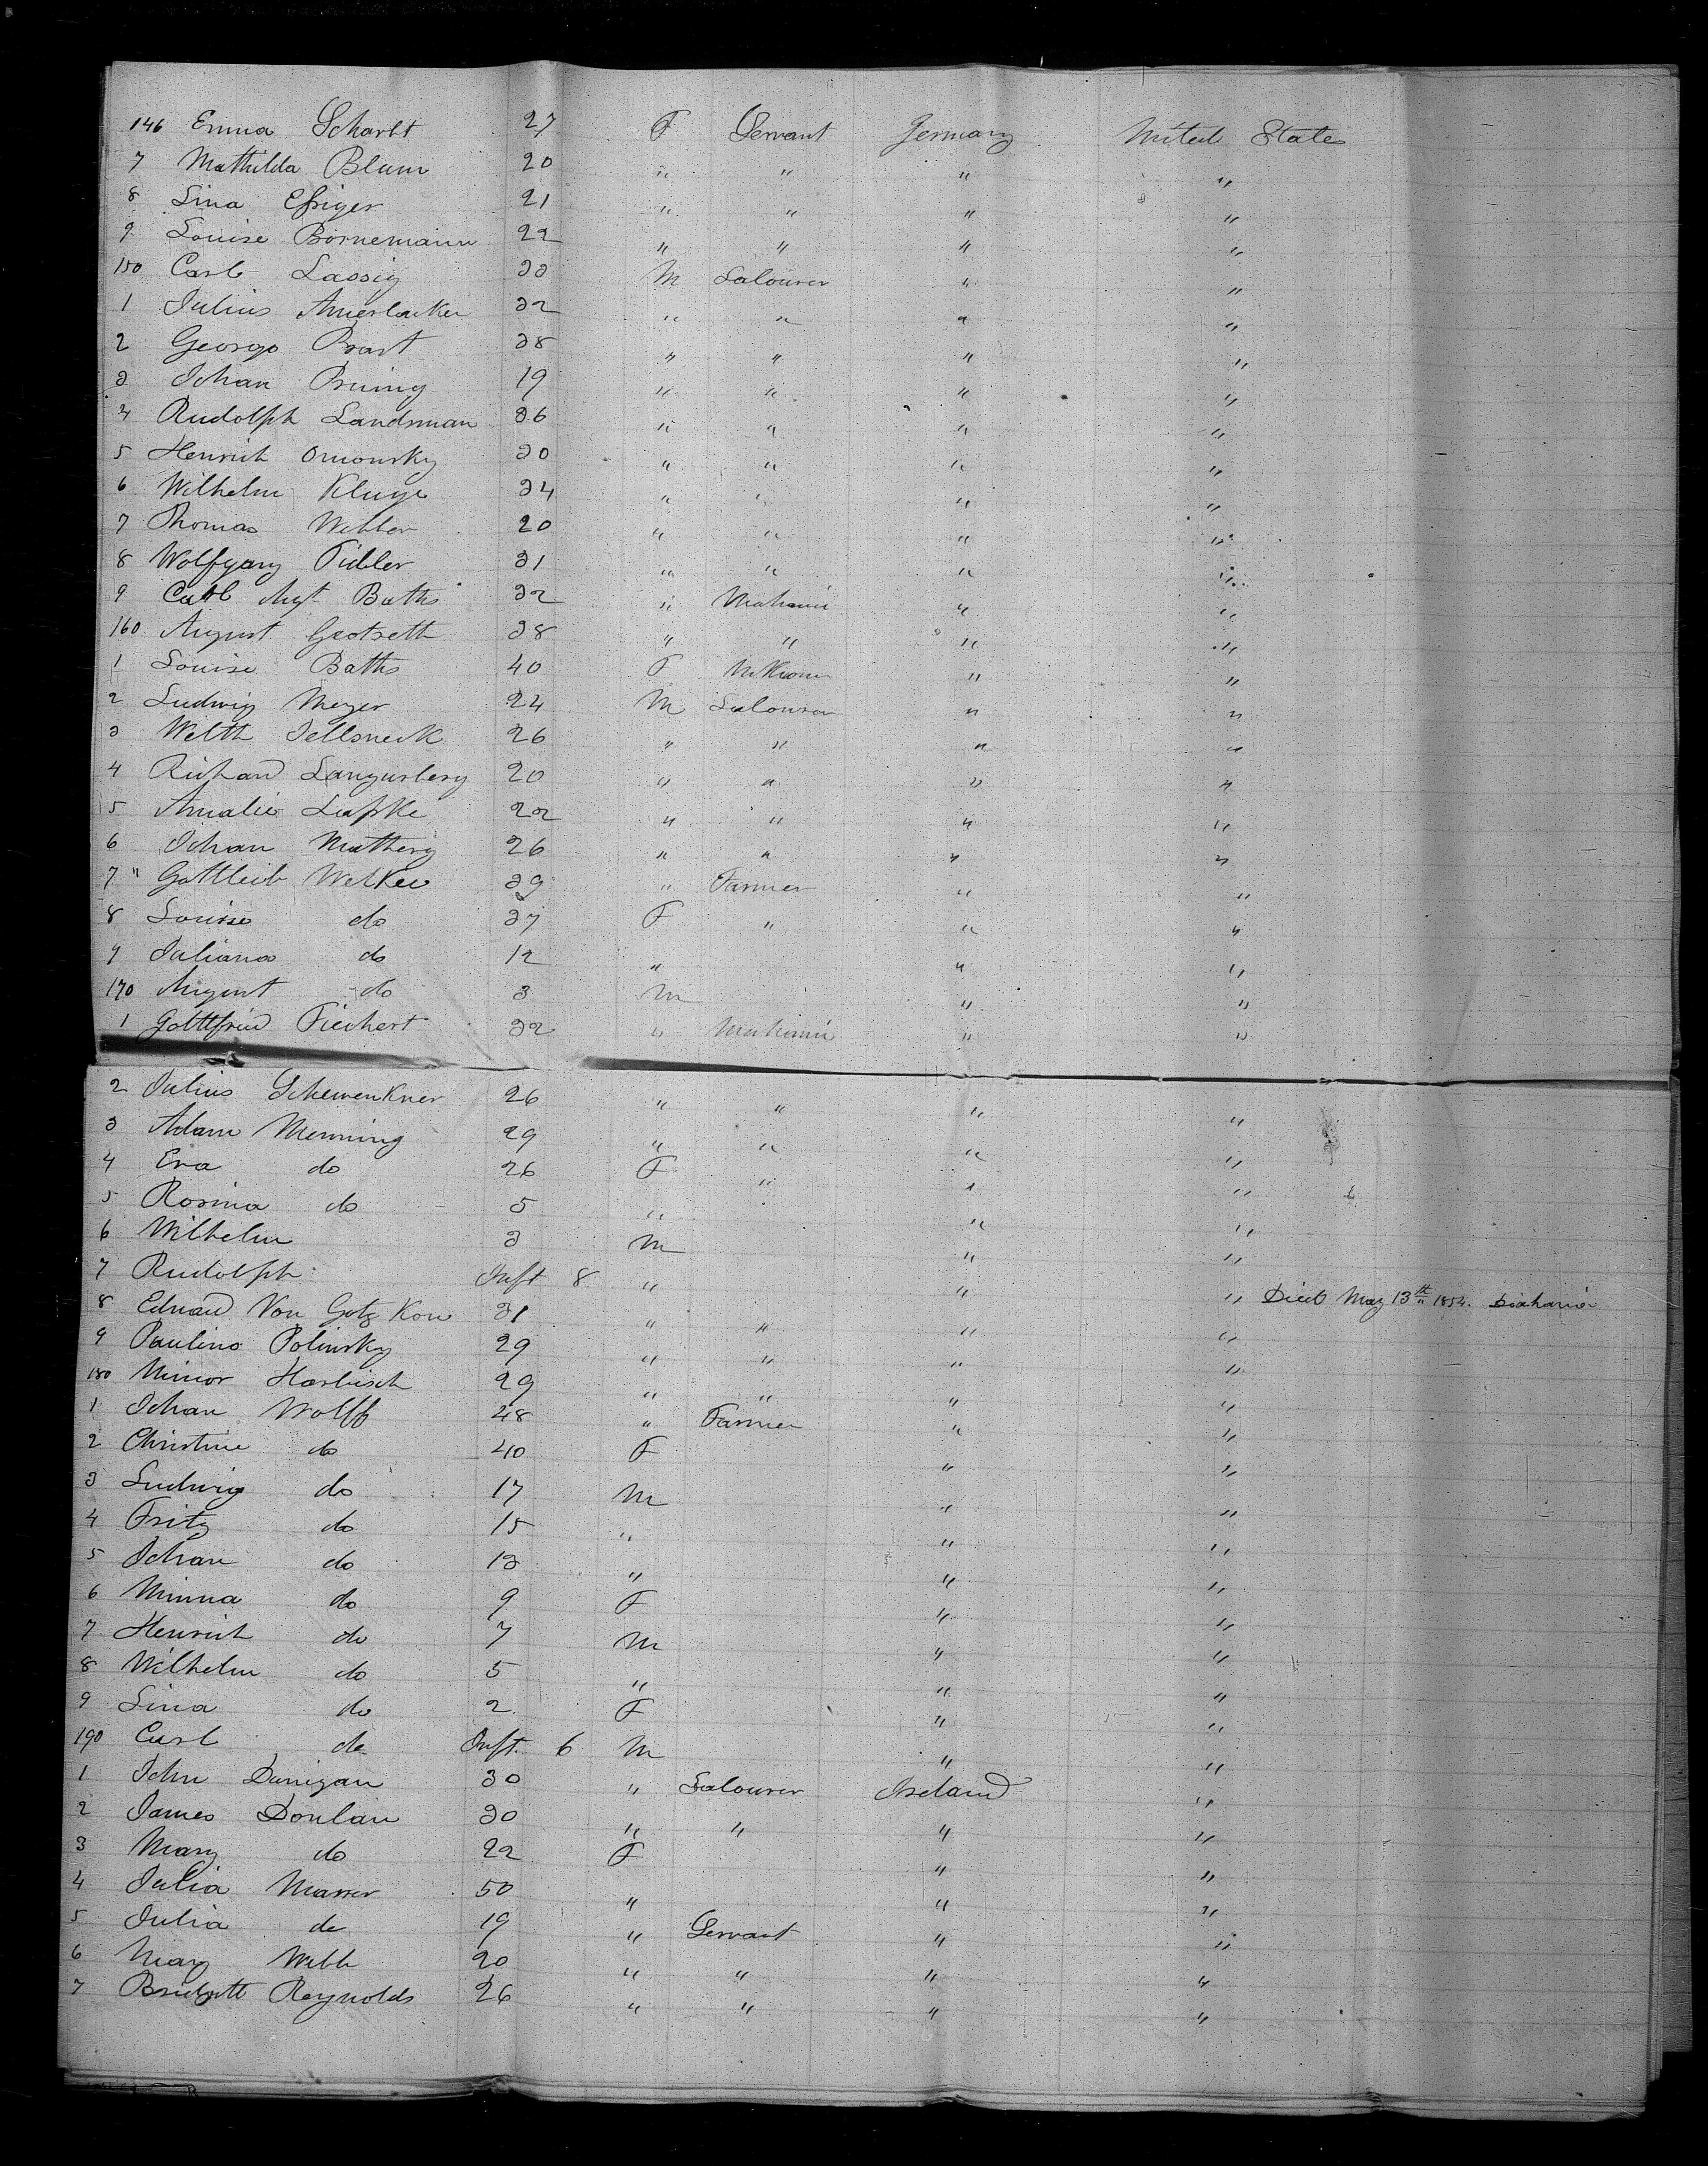 146 Emma Scharbt 27 F Servant Germany United States
7 Mathilda Blum 20 " " " "
8 Lina Essiger 21 " " " "
9 Louise Bornemann 22 " " " "
150 Carl Lassig 33 M Labourer " "
1 Julius Amerlacker 32 " " " "
2 George Brast 38 " " " "
3 Johan Pruing 19 " " " "
4 Rudolph Landsman 36 " " " "
5 Henrich Omonsky 30 " " " "
6 Wilhelm Kluge 34 " " " "
7 Thomas Webber 20 " " " "
8 Wolfgang Fidler 31 " " " "
9 Carl Augt Baths 32 " Mechanic " "
160 August Grotseth 38 " " " "
1 Louise Baths 40 F Unknown " "
2 Ludwig Meyer 24 M Labourer " "
3 Welth Jellsneck 26 " " " "
4 Richard Langusberg 20 " " " "
5 Amalie Lupke 22 " " " "
6 Johan Mutherig 26 " " " "
7 " Gottleib Welker 39 " Farmer " "
8 Louise do 37 F " " "
9 Juliana do 12 " " "
170 August do 3 M " "
1 Gottfried Fiechert 32 " Mechanic " "
2 Julius Schewenkner 26 " " " "
3 Adam Menning 29 " " " "
4 Eva do 26 F " " "
5 Rosina do 5 " " "
6 Wilhelm 3 M " "
7 Rudolph Inft 8 " " " Died May 13th 1854.
8 Eduard Von Gotz Kow 31 " " " "
9 Paulino Polinsky 29 " " " "
180 Minor Harbisch 29 " " " "
1 Johan Wolff 48 " Farmer " "
2 Christine do 40 F " "
3 Ludwig do 17 M " "
4 Fritz do 15 " " "
5 Johan do 13 " " "
6 Minna do 9 F " "
7 Henrich do 7 M " "
8 Wilhelm do 5 " " "
9 Lina do 2 F " "
190 Carl do Inft. 6 M " "
1 John Dunigan 30 " Labourer Ireland "
2 James Donlan 30 " " " "
3 Mary do 22 F " "
4 Julia Masser 50 " " "
5 Julia do 19 " Servant " "
6 Mary Webb 20 " " " "
7 Bridgett Reynolds 26 " " " "